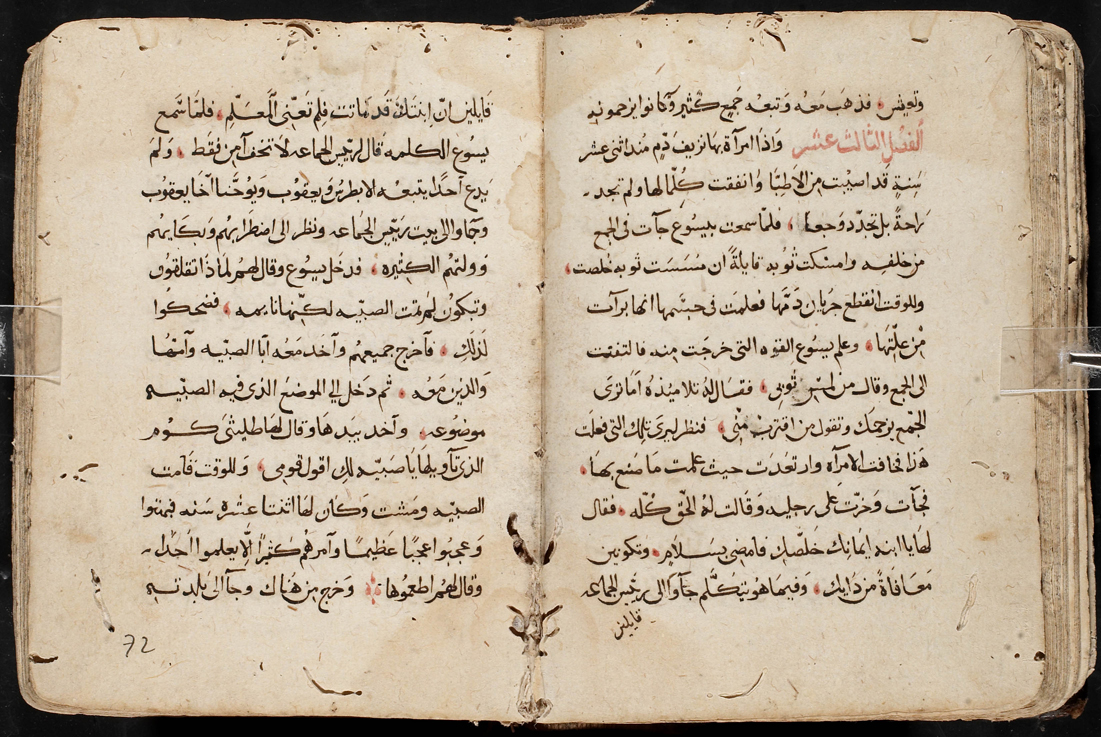 وتعيش فذهب معه وتبعه جمع كثير وكانوا يزحمونه
الفصل الثالث عشر واذا امرآة بها نزيف دم منداثنى عشر
سنةٍ قد اسيبت من الاطبا وانفقت كلما لها ولم تجد
راحةً بل تجدد وجعها فلما سمعت بيسوع جآت فى الجمع
من خلفه وامسكت ثوبه قايلةً ان مسست ثوبه خلصت
وللوقت انقطع جريان دمها فعلمت فى جسمها انها برآت
من علتها وعلم يسوع القوه التى خرجت منه فالتفت
الى الجمع وقال من لمس ثوبى فقال له تلاميذه اما ترى
الجمع يزحمك وتقول من اقترب منى فنظر ليرى تلك التى فعلت
هذا فخافت الامرآه وارتعدت حيث علمت ما صنع بها
فجآت وخرّت على رجليه وقالت له الحق كله فقال
لها يا ابنه ايمانك خلصك فامضى بسلام وتكونين
معافاةً من دايك وفيما هو يتكلم جآوا الى رييس الجماعه
قايلين
قايلين انّ ابنتك قد ماتت فلم تعنى المعلم فلما سمع
يسوع الكلمه قال لرييس الجماعه لا تخف آمن فقط ولم
يدع آحدًا يتبعه الا بطرس ويعقوب ويوحنا آخا يعقوب
وجآوا الى بيت رييس الجماعه ونظر الى اضطرابهم وبكايهم
وولولتهم الكثيره فدخل يسوع وقال لهم لماذا تقلقون
وتبكون لم تمت الصبيه لكنها نايمه فضحكوا
لذلك فآخرج جميعهم وآخد معه آبا الصبيه وآمها
والدين معه ثم دخل الى الموضع الذى فيه الصبيه
موضوعه وآخد بيدها وقال لها طليثى كوم
الذى تآويلها يا صبيه لك اقول قومى وللوقت قامت
الصبيه ومشت وكان لها اثنتا عشرة سنه فبهتوا
وعجبوا عجبًا عظيمًا وآمرهم كثيرًا الّا يعلموا آحدًا
وقال لهم اطعموها وخرج من هناك وجآ الى بلدته
72